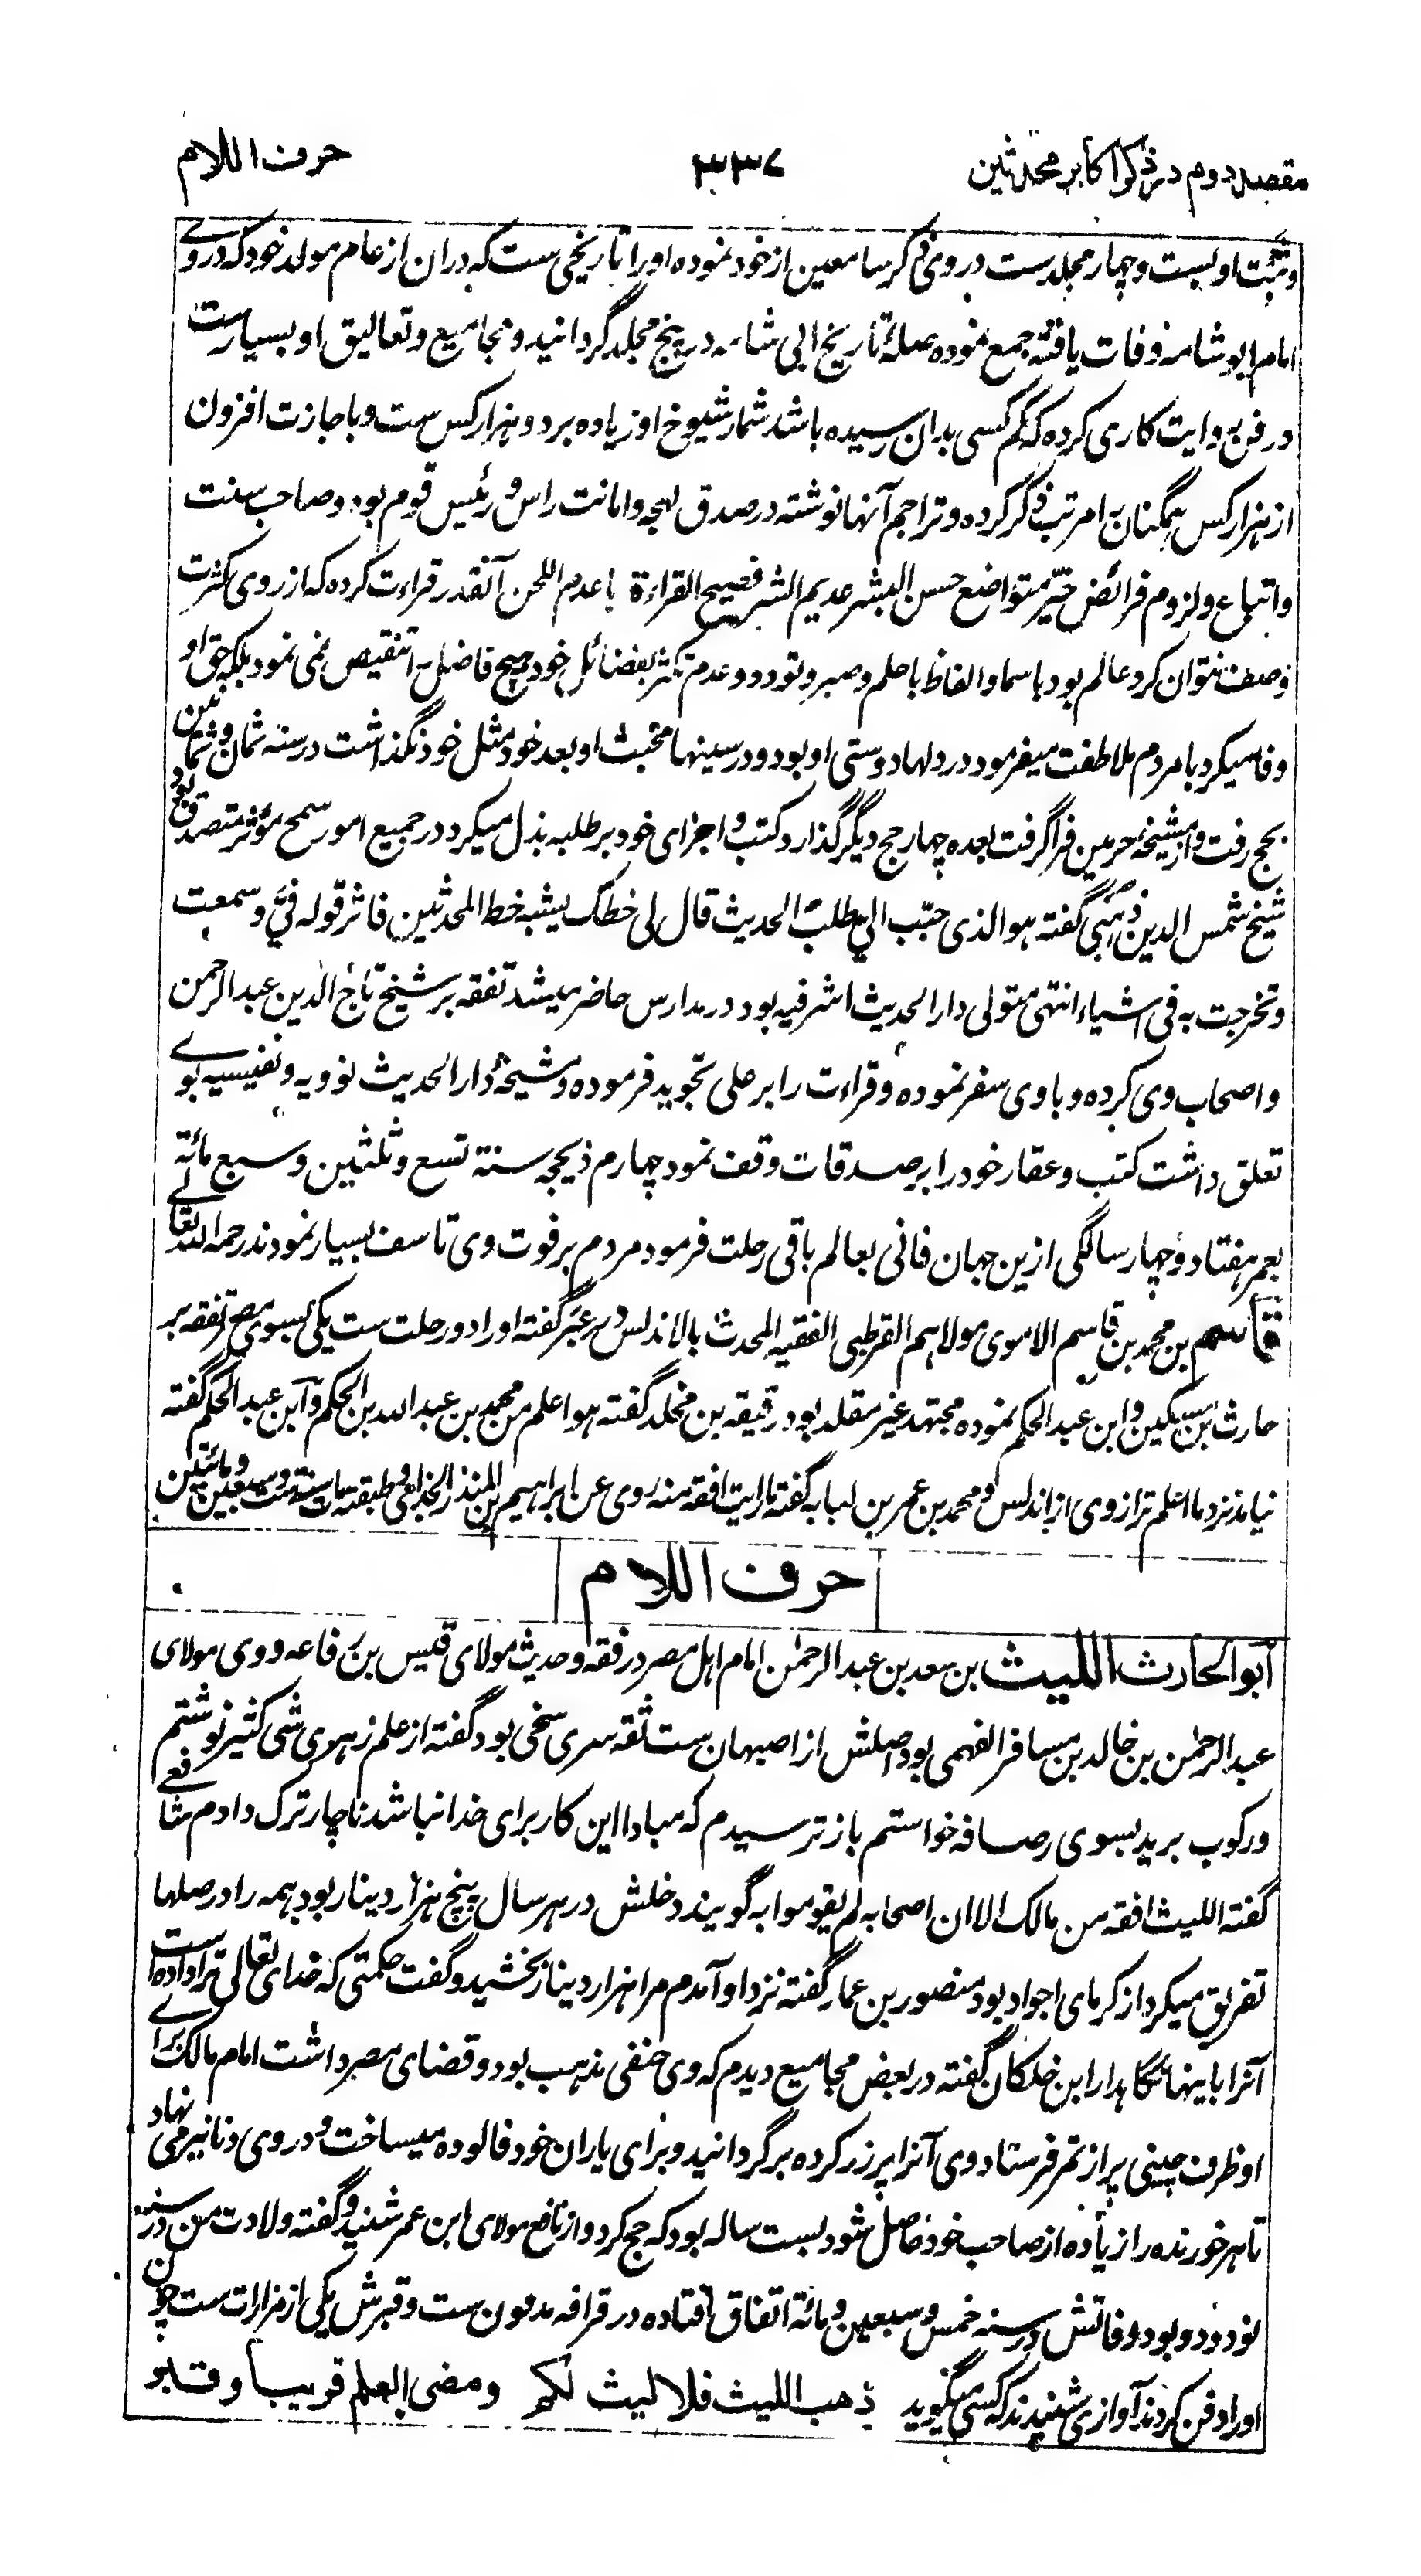 مقصد دوم در ذکر اکابر محدثین
۳۳۷
حرف اللام
وثبت او بست و چهار مجلد ست در وی ذکر سامعین از خود نموده او را تاریخی ست که دران از عام مولد خود که در وے
امام ابو شامه وفات یافته جمع نموده صلهٔ تاریخ ابی شامه در پنج مجلد گردانید و مجامیع و تعالیق او بسیارست
در فن روایت کاری کرده که کم کسی بدان رسیده باشد شمار شیوخ او زیاده بر دو هزار کس ست و باجازت افزون
از هزار کس همگنان را مرتب ذکر کرده و تراجم آنها نوشته در صدق لهجه و امانت راس و رئیس قوم بود و صاحب سنت
و اتباع و لزوم فرائض خیّر متواضع حسن البشر عدیم الشر فصیح القراءة با عدم اللحن آنقدر قراءت کرده که از روی کثرت
وصف نتوان کرد عالم بود باسما و الفاظ با حلم و صبر و تودد و عدم تکثر بفضائل خود هیچ فاضل را تنقیص نمی نمود بلکه حق او
وفا میکرد با مردم ملاطفت میفرمود در دلها دوستی او بود و در سینها محبت او بعد خود مثل خود نگذاشت در سنه ثمان و ثمانین
بحج رفت و از مشیخهٔ حرمین فرا گرفت بعده چهار حج دیگر گذارد و کتب و اجزای خود بر طلبه بذل میکرد در جمیع امور سمح مؤثر متصدق بود
شیخ شمس الدین ذهبی گفته هو الذی حبّب الیّ طلب الحدیث قال لی خطک یشبه خط المحدثین فاثر قوله فیّ و سمعت
و تخرجت به فی اشیاء انتهی متولی دار الحدیث اشرفیه بود در مدارس حاضر میشد تفقه بر شیخ تاج الدین عبد الرحمن
و اصحاب وی کرده و با وی سفر نموده و قراءت را بر حلی تجوید فرموده و مشیخهٔ دار الحدیث نوویه و نفیسیه بوے
تعلق داشت کتب و عقار خود را بر صدقات وقف نمود چهارم ذیحجه سنة تسع و ثلثین و سبع مائة
بعمر هفتاد و چهار سالگی ازین جهان فانی بعالم باقی رحلت فرمود مردم بر فوت وی تاسف بسیار نمودند رحمه الله تعالے
قاسم بن محمد بن قاسم الاموی مولاهم القرطبی الفقیه المحدث بالاندلس در عبر گفته او را دو رحلت ست یکی بسوی مصر تفقه بر
حارث بن مسکین و ابن عبد الحکم نموده مجتهد غیر مقلد بود رفیقه بن مخلد گفته هو اعلم من محمد بن عبد الله بن الحکم و ابن عبد الحکم گفته
نیامد نزد ما اعلم تر از وی از اندلس و محمد بن عمر بن لبابه گفته ما رایت افقه منه روی عن ابراهیم بن المنذر الحزامی و طبقته مات سنة ست و سبعین و مائتین
حرف اللام
ابو الحارث اللیث بن سعد بن عبد الرحمٰن امام اهل مصر در فقه و حدیث مولای قیس بن رفاعه و وی مولای
عبد الرحمٰن بن خالد بن مسافر الفهمی بود اصلش از اصبهان ست ثقه سری سخی بود گفته از علم زهری شی کثیر نوشتم
و رکوب برید بسوی رصافه خواستم باز ترسیدم که مبادا این کار برای خدا نباشد ناچار ترک دادم شافعے
گفته اللیث افقه من مالک الا ان اصحابه لم یقوموا به گویند دخلش در هر سال پنج هزار دینار بود همه را در صلها
تفریق میکرد از کرمای اجواد بود منصور بن عمار گفته نزد او آمدم مرا هزار دینار بخشید و گفت حکمتی که خدای تعالی ترا داده است
آنرا باینها نگاهدار ابن خلکان گفته در بعض مجامیع دیدم که وی حنفی مذهب بود و قضای مصر داشت امام مالک براے
او ظرف چینی پر از تمر فرستاد وی آنرا پر زر کرده برگردانید و برای یاران خود فالوده میساخت و در وی دنانیر می نهاد
تا هر خورنده را زیاده از صاحب خود حاصل شود بست ساله بود که حج کرد و از نافع مولای ابن عمر شنید و گفته ولادت من در سنه
نود و دو بود وفاتش در سنه خمس و سبعین و مائة اتفاق افتاده در قرافه مدفون ست و قبرش یکی از مزارات ست چون
او را دفن کردند آوازی شنیدند که کسی میگوید ذهب اللیث فلا لیث لکم ومضی العلم قریبا وقبر